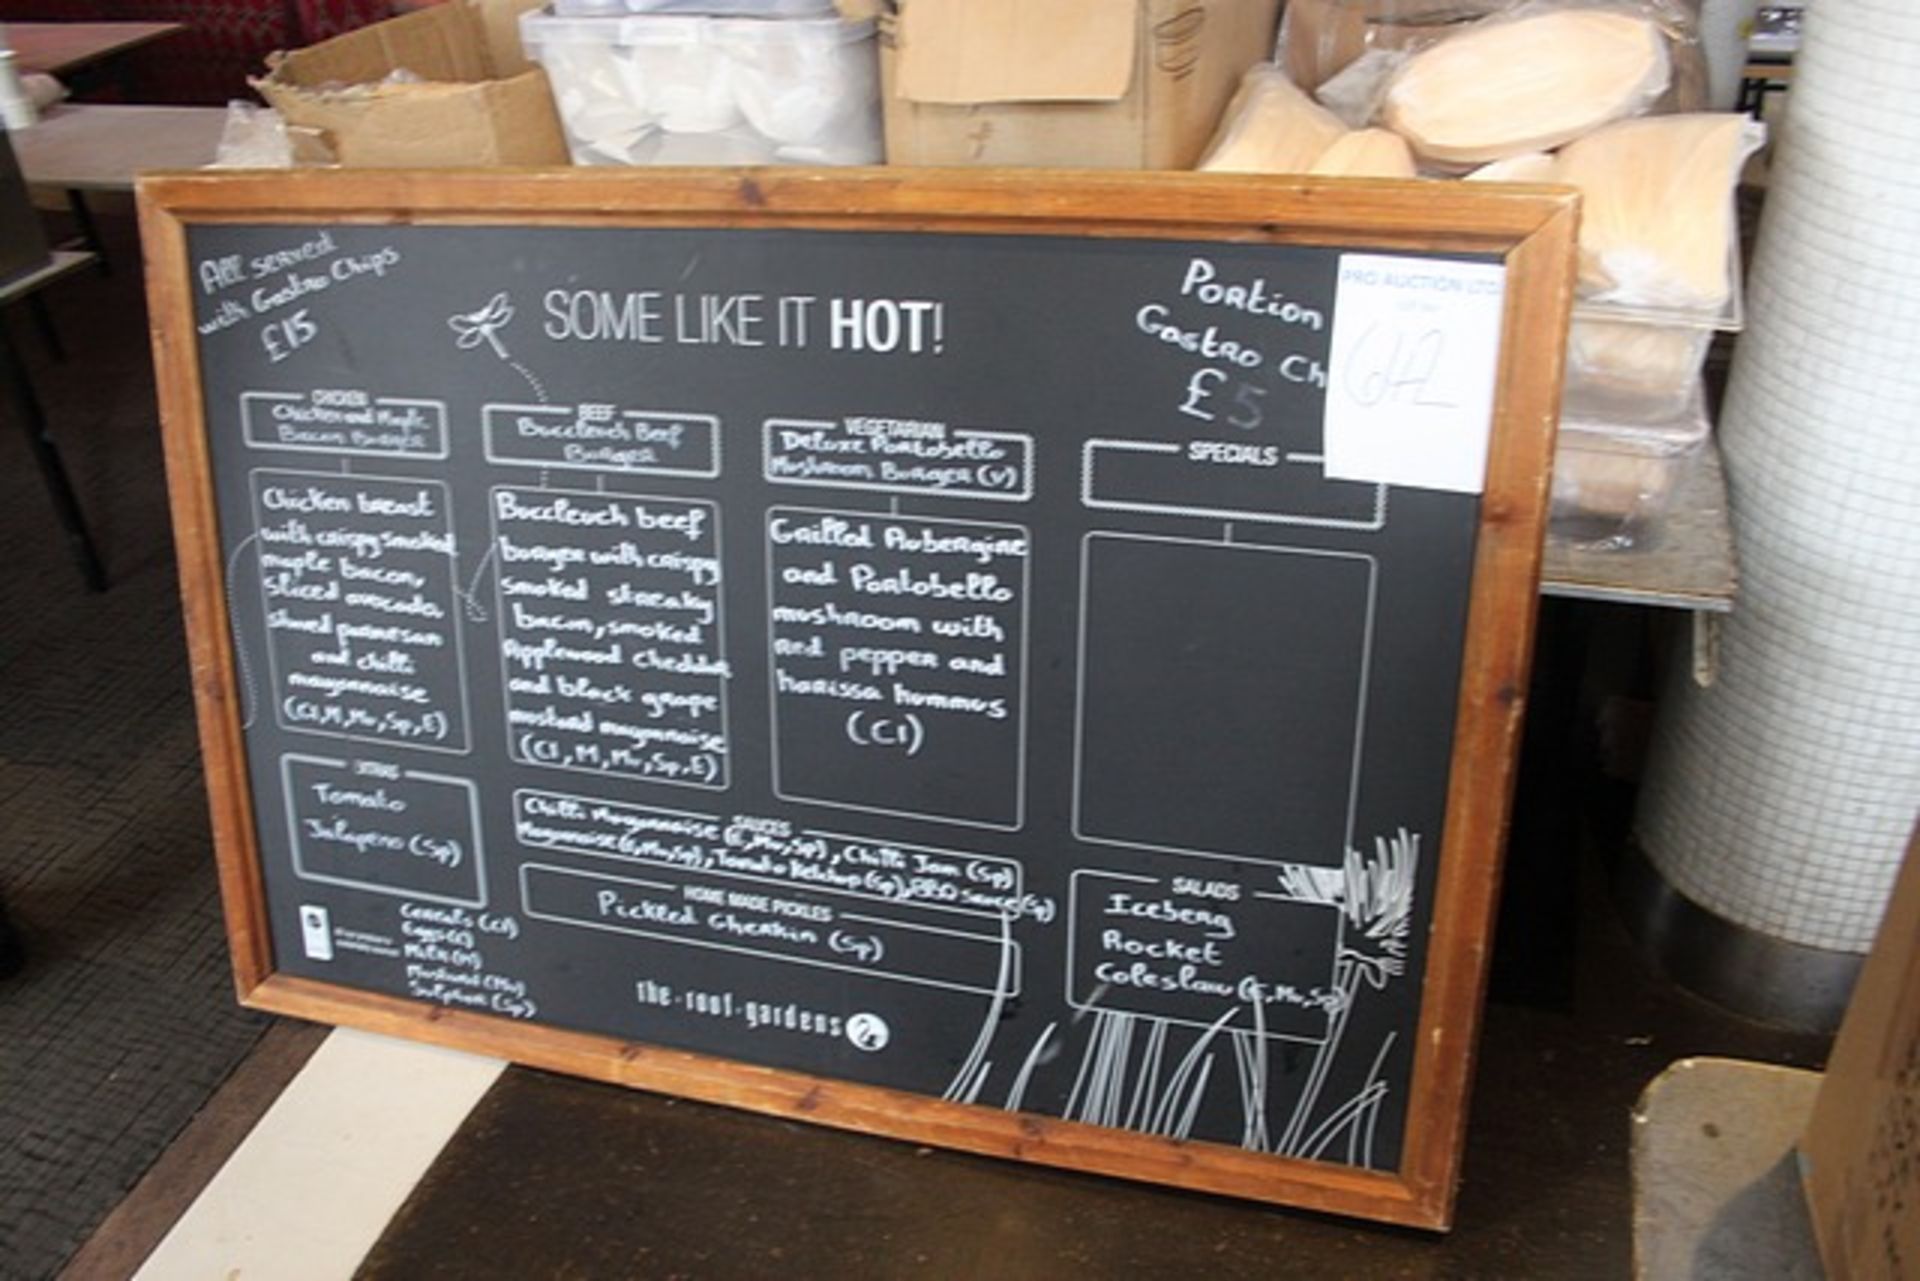 All served
with Gastro Chips
£15
SOME LIKE IT HOT!
Portion
Gastro Ch
£5
PRO AUCTION LTD
642
CHICKEN
Chicken and Maple
Bacon Burger
Chicken breast
with crispy smoked
maple bacon,
sliced avocado,
shaved parmesan
and chilli
mayonnaise
(CI,M,Mu,Sp,E)
BEEF
Buccleuch Beef
Burger
Buccleuch beef
burger with crispy
smoked streaky
bacon, smoked
Applewood Cheddar
and black grape
mustard mayonnaise
(CI,M,Mu,Sp,E)
VEGETARIAN
Deluxe Portobello
Mushroom Burger (v)
Grilled Aubergine
and Portobello
mushroom with
red pepper and
harissa hummus
(CI)
SPECIALS
EXTRAS
Tomato
Jalapeno (Sp)
SAUCES
Chilli Mayonnaise (E,Mu,Sp), Chilli Jam (Sp)
Mayonnaise (E,Mu,Sp), Tomato Ketchup (Sp), BBQ sauce (Sp)
HOME MADE PICKLES
Pickled Gherkin (Sp)
SALADS
Iceberg
Rocket
Coleslaw (E,Mu,Sp)
Cereals (CI)
Eggs (E)
Milk (M)
Mustard (Mu)
Sulphur (Sp)
the·roof·gardens